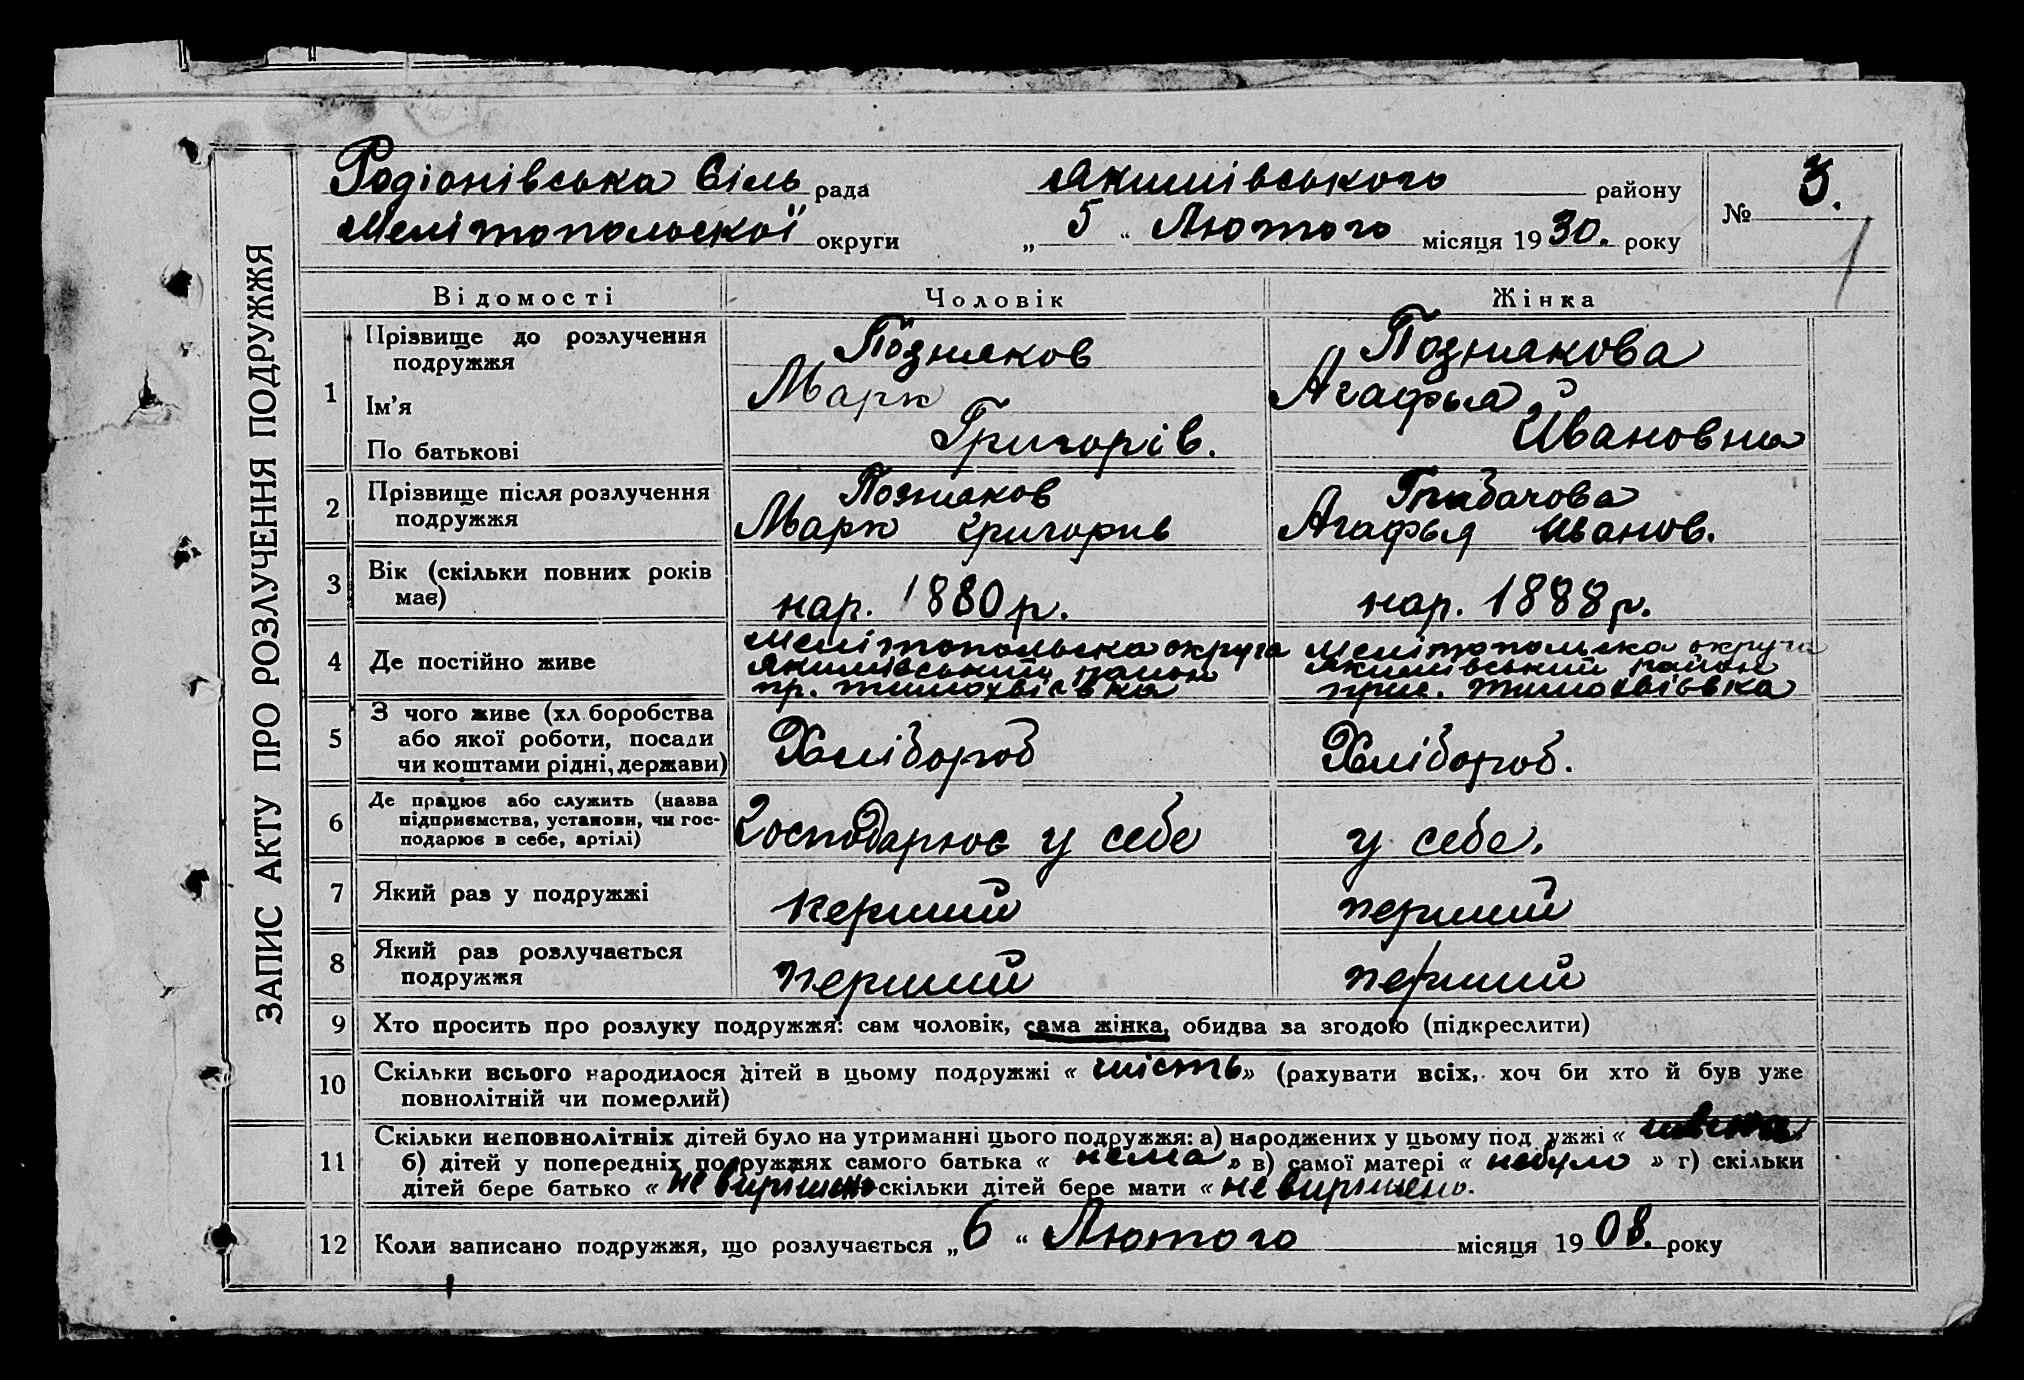 ЗАПИС АКТУ ПРО РОЗЛУЧЕННЯ ПОДРУЖЖЯ
Родіонівська Сіль рада Якимівського району № 3.
Мелітопольскої округи „ 5 “ Лютого місяця 1930. року
Відомості Чоловік Жінка
1 Прізвище до розлучення подружжя Позняков Познякова
Ім’я Марк Агафья
По батькові Григорів. Ивановна
2 Прізвище після розлучення подружжя Позняков Марк Григорив Табачова Агафья Иванов.
3 Вік (скільки повних років має) нар. 1880 р. нар. 1888 р.
4 Де постійно живе Мелітопольска округа Якимівський район пр. Мелітопольска округа Якимівський район
5 З чого живе (хл.боробства або якої роботи, посади чи коштами рідні, держави) Хлібороб Хлібороб.
6 Де працює або служить (назва підприємства, установи, чи господарює в себе, артілі) Господарює у себе у себе.
7 Який раз у подружжі перший перший
8 Який раз розлучається подружжя перший перший
9 Хто просить про розлуку подружжя: сам чоловік, сама жінка, обидва за згодою (підкреслити)
10 Скільки всього народилося дітей в цьому подружжі « шість » (рахувати всіх, хоч би хто й був уже
повнолітній чи померлий)
11 Скільки неповнолітніх дітей було на утриманні цього подружжя: а) народжених у цьому под ужжі «
б) дітей у попередніх подружжях самого батька « нема » в) самої матері « небуло » г) скільки
дітей бере батько « не вирішено скільки дітей бере мати « не вирішено.
12 Коли записано подружжя, що розлучається „ 6 “ Лютого місяця 1908. року